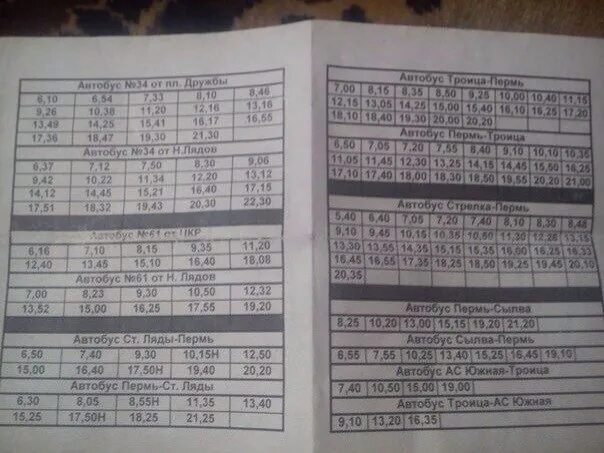 Автобус №34 от пл. Дружбы
6,10 6,54 7,33 8,10 8,46
9,26 10,38 11,20 12,16 13,16
13,49 14,25 15,41 16,17 16,55
17,36 18,47 19,30 21,30
Автобус №34 от Н.Лядов
6,37 7,12 7,50 8,30 9,06
9,42 10,22 11,34 12,20 13,12
14,12 14,45 15,21 16,40 17,15
17,51 18,32 19,43 20,30 22,30
Автобус №61 от ЦКР
6,16 7,10 8,15 9,35 11,20
12,40 13,45 15,10 16,40 18,08
Автобус №61 от Н. Лядов
7,00 8,23 9,30 10,50 12,32
13,52 15,00 16,25 17,55 19,20
Автобус Ст. Ляды-Пермь
6,50 7,40 9,30 10,15Н 12,50
15,00 16,40 17,50Н 19,40 20,20
Автобус Пермь-Ст. Ляды
6,30 8,05 8,55Н 11,35 13,40
15,25 17,50Н 18,25 21,25
Автобус Троица-Пермь
7,00 8,15 8,35 8,50 9,25 10,00 10,40 11,15
12,15 13,05 14,25 15,00 15,40 16,10 16,25 17,20
18,10 18,40 19,30 20,00 20,20
Автобус Пермь-Троица
6,50 7,05 7,20 7,55 8,40 9,10 10,10 10,35
11,05 11,45 12,30 13,25 14,15 14,45 15,50 16,25
17,10 17,40 18,00 18,30 18,50 19,55 20,20 21,00
Автобус Стрелка-Пермь
5,40 6,40 7,05 7,20 7,40 8,10 8,30 8,48
9,10 9,45 10,15 10,35 10,50 11,30 12,26 13,15
13,30 13,55 14,35 14,55 15,35 16,00 16,25 16,33
16,45 16,55 17,35 18,25 18,50 19,25 19,45 20,10
20,35
Автобус Пермь-Сылва
8,25 10,20 13,00 15,15 19,20 21,20
Автобус Сылва-Пермь
6,55 7,55 10,25 13,40 15,25 16,45 19,10
Автобус АС Южная-Троица
7,40 10,50 15,00 19,00
Автобус Троица-АС Южная
9,10 13,20 16,35